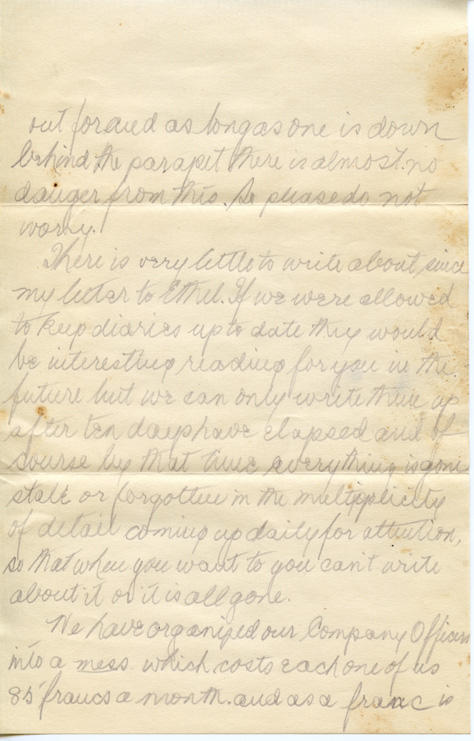 out for and as long as one is down
behind the parapet there is almost no
danger from this. So please do not
worry.
There is very little to write about, since
my letter to Ethel. If we were allowed
to keep diaries up to date they would
be interesting reading for you in the
future but we can only write them up
after ten days have elapsed and of
course by that time everything is gone
stale or forgotten in the multiplicity
of detail coming up daily for attention,
so that when you want to you can't write
about it or it is all gone.
We have organized our Company Officers
into a mess which costs each one of us
85 francs a month. and as a franc is